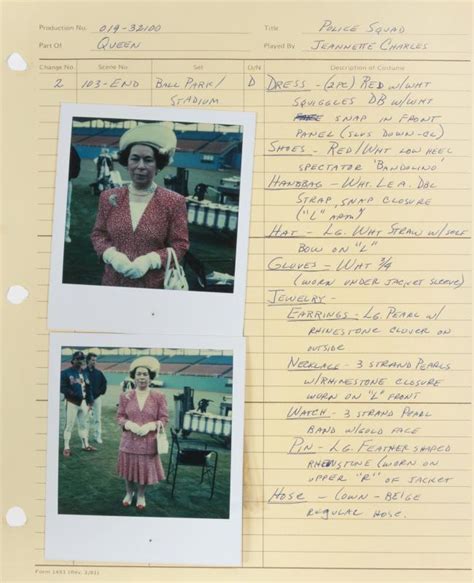 Production No. 019-32100 Title Police Squad
Part Of Queen Played By Jeannette Charles
Change No. Scene No. Set D/N Description of Costume
2 103-End Ball Park/ Stadium D
Dress - (2pc) Red w/wht
squggles DB w/wht
snap in front
panel (slvs down-
Shoes - Red/Wht low heel
spectator "Bandolino"
Handbag - Wht Lea. Dbl
strap, snap closure
("L" arm)
Hat - Lg. Wht Straw w/self
bow on "L"
Gloves - Wht 3/4
(worn under jacket sleeve)
Jewelry -
Earrings - Lg. Pearl w/
rhinestone clover on
outside
Necklace - 3 strand pearls
w/rhinestone closure
worn on "L" front
Watch - 3 strand pearl
band w/gold face
Pin - Lg. Feather shaped
rhinestone (worn on
upper "R" of jacket
Hose - (own - beige
regular hose.
Form 1481 (Rev. 2/81)